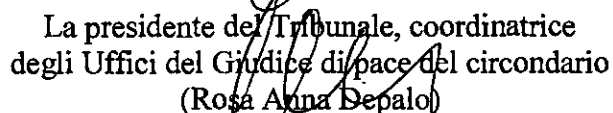 La presidente del Tribunale, coordinatrice
degli Uffici del Giudice di pace del circondario
(Rosa Anna Depalo)